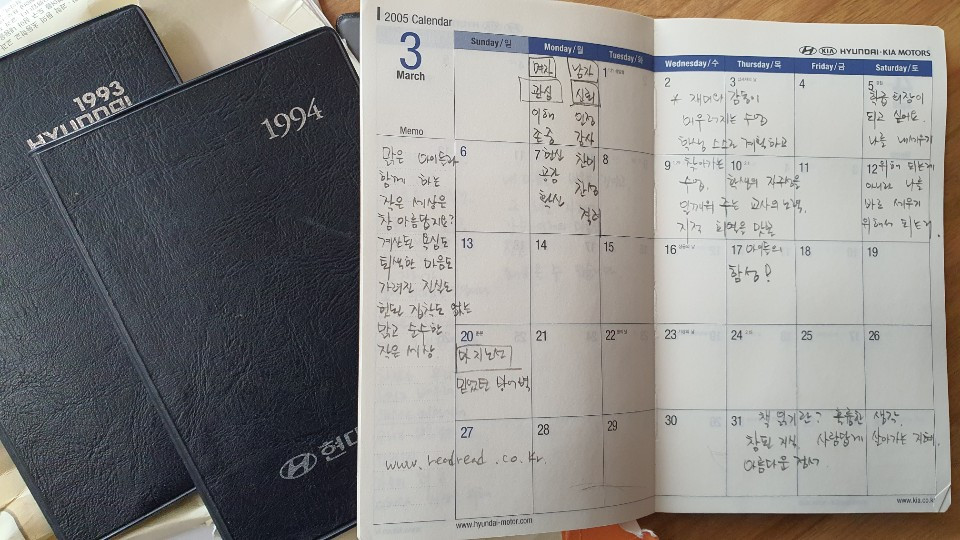 1993
HYUNDAI
1994
현대
2005 Calendar
3
March
Memo
맑은 아이들과
함께 하는
작은 세상은
참 아름답지요?
계산된 욕심도
퇴색한 마음도
가려진 진실도
헛된 집착도 없는
맑고 순수한
작은 세상
Sunday/일
Monday/월
Tuesday/화
여자 남자 1
관심 신뢰
이해 인정
존중 감사
6
7 헌신 찬미 8
공감 찬성
확신 격려
13 14 15
20 춘분 21 22
마지노선
믿었던 방어벽
27 28 29
www.readread.co.kr
www.hyundai-motor.com
HYUNDAI·KIA MOTORS
Wednesday/수
Thursday/목
Friday/금
Saturday/토
2 3 4 5
* 재미와 감동이
어우러지는 수업
학생 스스로 계획하고
학급 회장이
되고 싶어요.
나를 내세우기
9 찾아가는 10 11
수업. 학생의 자주성을
일깨워 주는 교사의 노력.
지적 희열을 맛본
12 위해 되는게
아니라 나를
바로 세우기
위해서 되는거.
16 17 아이들의 18 19
함성!
23 24 25 26
30 31
책 읽기란? 훌륭한 생각,
참된 지식, 사람답게 살아가는 지혜,
아름다운 정서
www.kia.co.kr